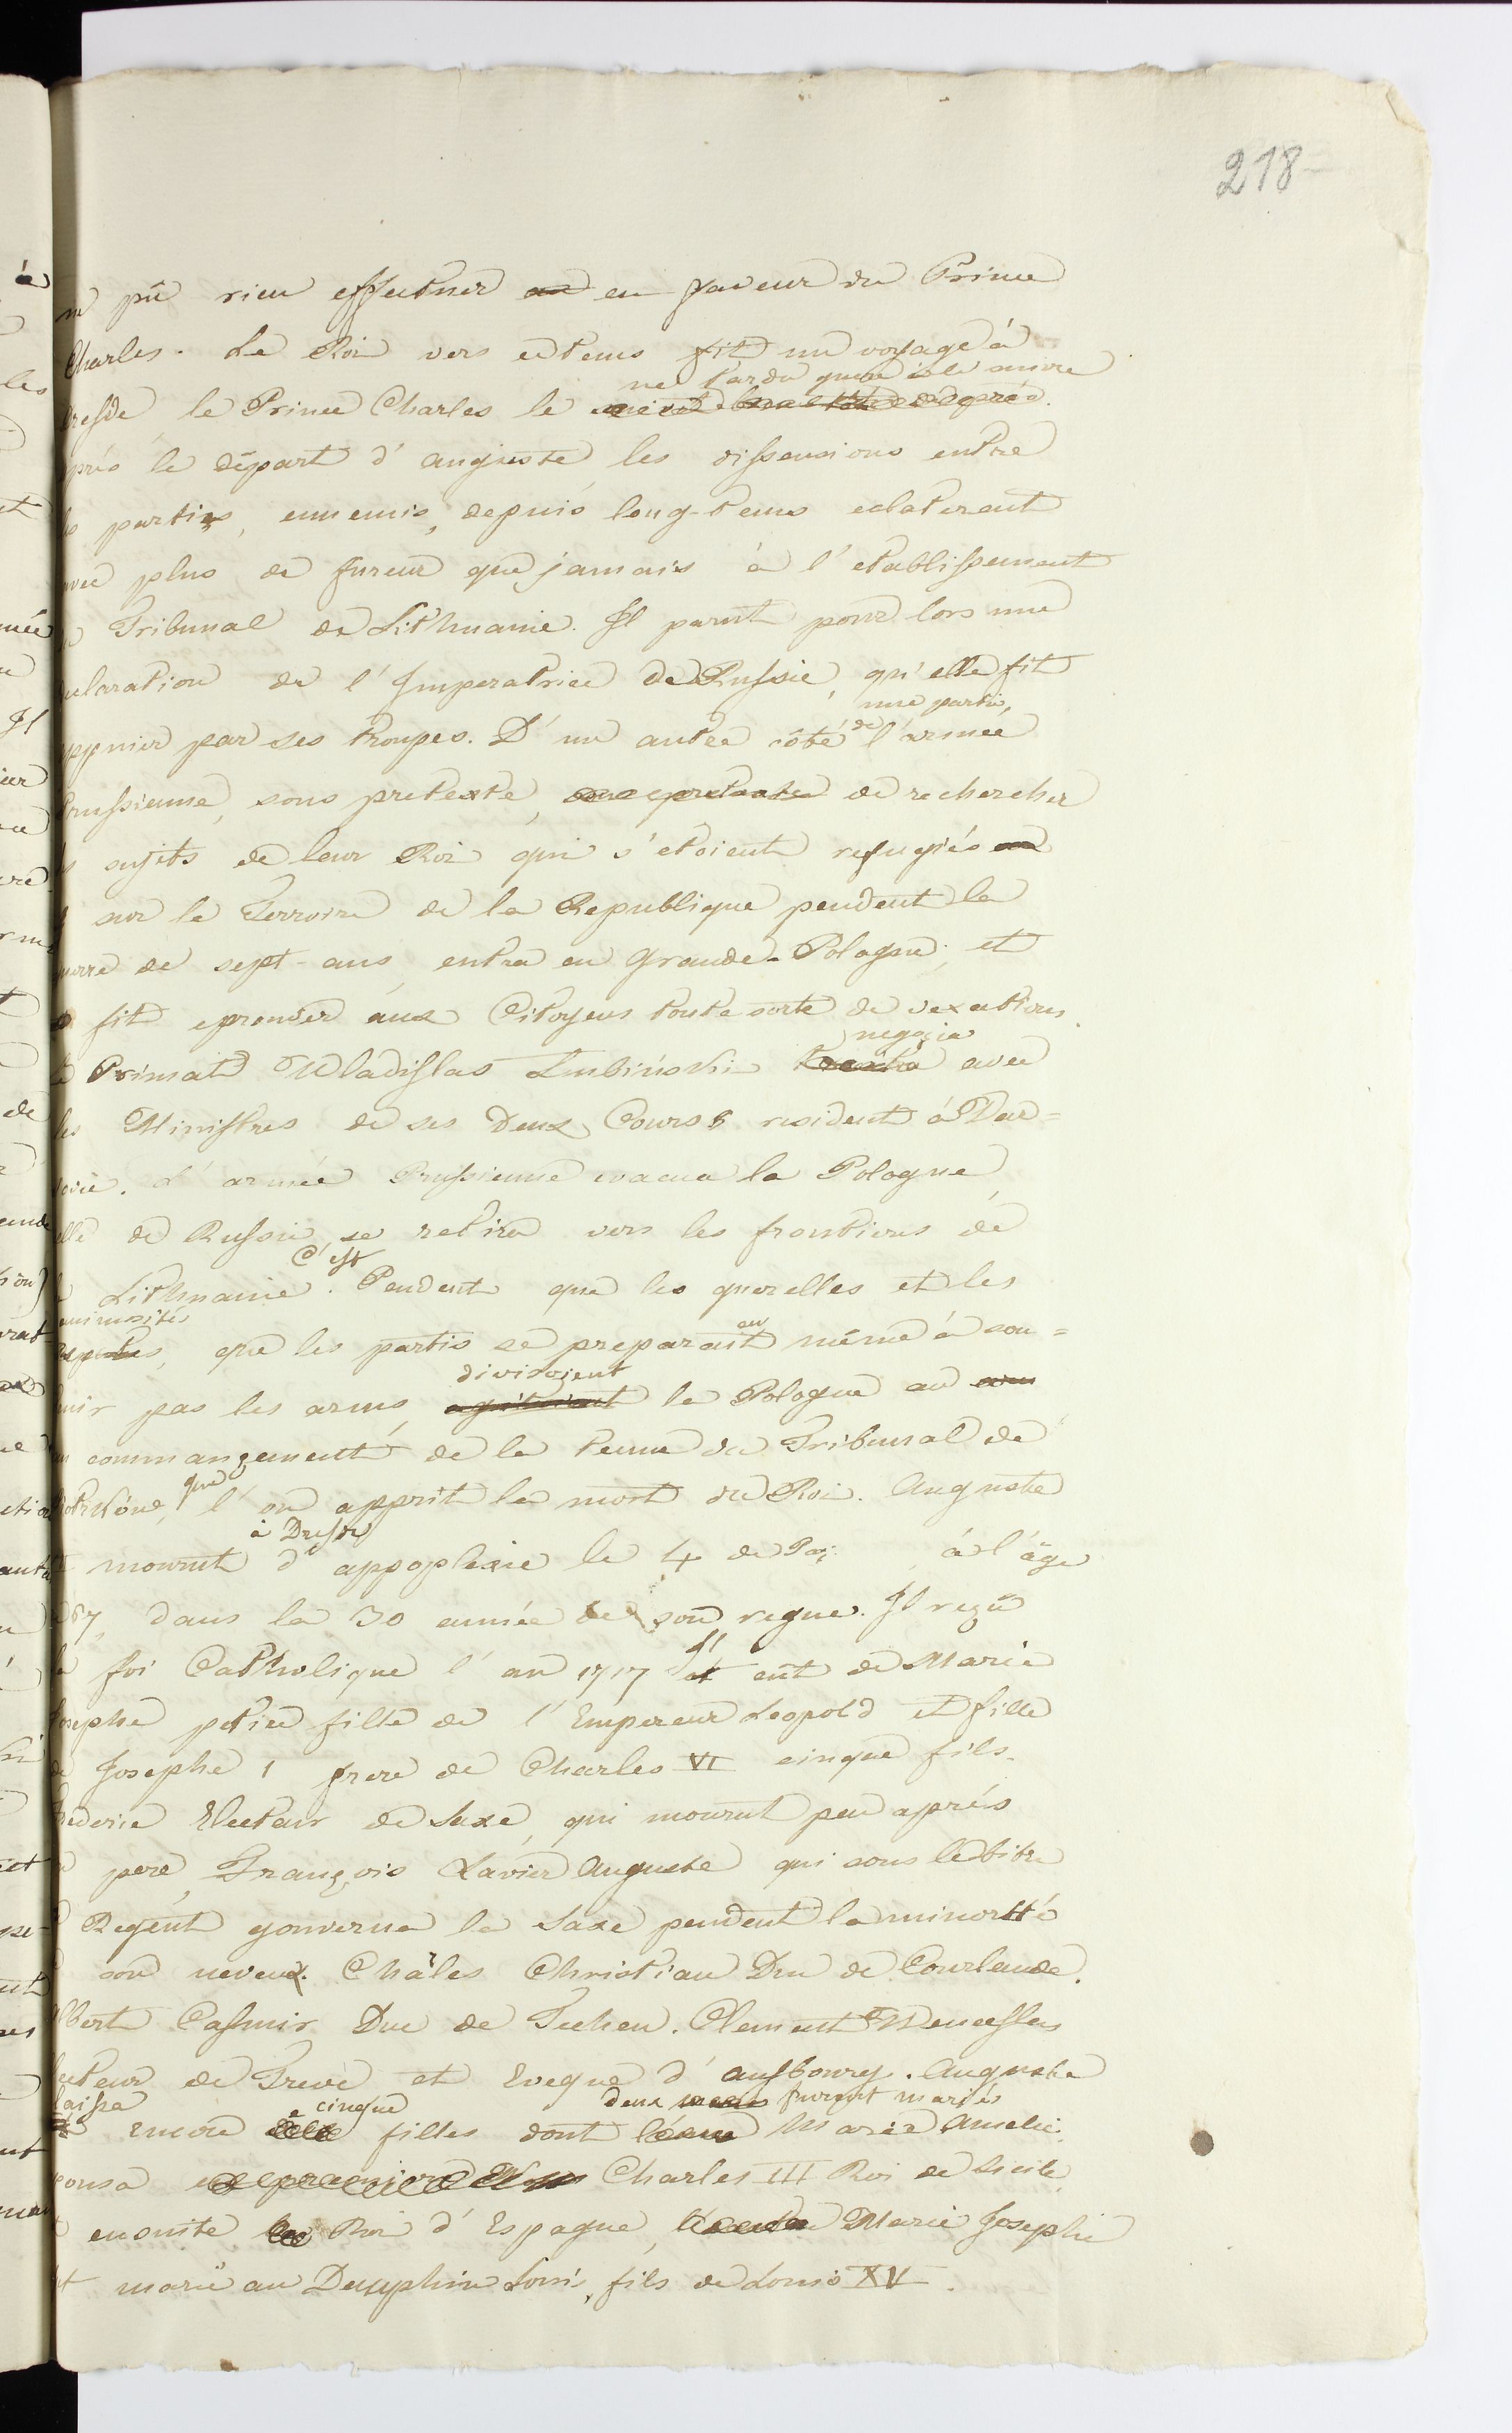 218
ne pû rien effectuer en faveur du Prince
Charles. Le Roi vers ce tems fit un voyage à
ne tarda guere à le suivre
Dresde le Prince Charles le
près le départ d'auguste les dissensions entre
partis, ennemis, depuis long-tems eclaterent
avec plus de fureur que jamais à l'etablissement
Tribunal de Lithuanie. Il parut pour lors une
claration de l'Imperatrice de Russie, qu'elle fit
une partie,
ppuier par ses troupes. D'un autre côté de l'armée
Prussienne, sous pretexte, de rechercher
sujets de leur Roi qui s'etoient refugiés
sur le Terroire de la Republique pendent la
uerre de sept-ans, entra en Grande-Pologne, et
fit eprouver aux Citoyens toute sorte de vexations.
negoçia
Primat Wladislas Lubiński avec
les Ministres de ses Deux Cours resident à Var=
sovie. L'armée Prussienne evacua la Pologne,
elle de Russie, se retira vers les frontieres de
C'est
Lithuanie. Pendent que les querelles et les
animosités
que les partis se preparoient même à sou=
divisoient
enir pas les arms, la Pologne au
commançement de la tenue du Tribunal de
que
l'on apprit la mort du Roi. Auguste
à Dresde
mourut d'appoplexie le 4 de à l'âge
67, dans la 30 année de son regne. Il reçû
la foi Catholique l'an 1717 Il eut de Marie
Josephe petite fille de l'Empereur Leopold et fille
de Josephe 1 frere de Charles VI cinque fils.
Frederic Electeur de Saxe, qui mourut peu après
pere, François Xavier Auguste qui sous le titre
Regent gouverna la Saxe pendent la minorité
son neveux. Chales Christian Duc de Courlande.
Albert Casmir Duc de Techen. Clement Wenceslas
lecteur de Treve et Eveque d'ausbourg. Auguste
laissa cinque deux furent mariés
encore filles dont Marie Amelie
pousa Charles III Roi de Sicile,
ensuite Roi d'Espagne, Marie Josephe
marië au Dauphin Louis, fils de Louis XV.